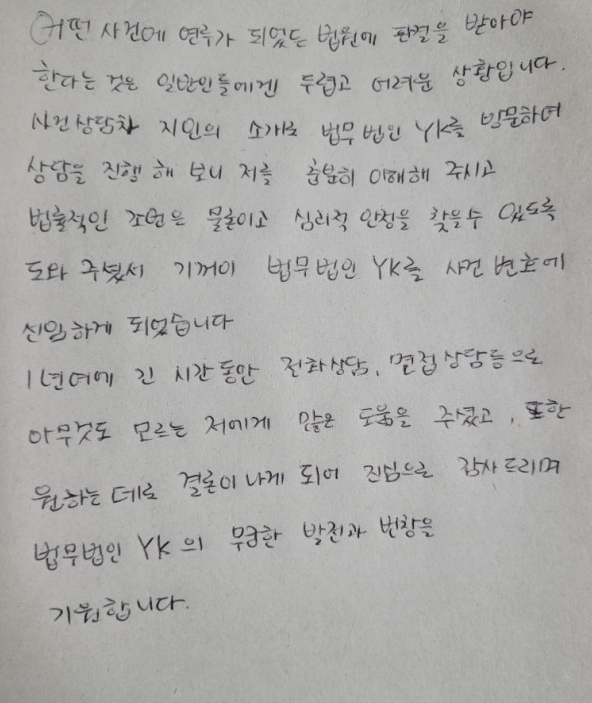 어떤 사건에 연루가 되었든 법원에 판결을 받아야
한다는 것은 일반인들에겐 두렵고 어려운 상황입니다.
사건상담차 지인의 소개로 법무법인 YK를 방문하여
상담을 진행 해 보니 저를 충분히 이해해 주시고
법률적인 조언은 물론이고 심리적 안정을 찾을수 있도록
도와 주셨서 기꺼이 법무법인 YK를 사건 변호에
선임하게 되었습니다
1년여에 긴 시간동안 전화상담, 면접상담등으로
아무것도 모르는 저에게 많은 도움을 주셨고, 또한
원하는 데로 결론이 나게 되어 진심으로 감사드리며
법무법인 YK의 무궁한 발전과 번창을
기원합니다.